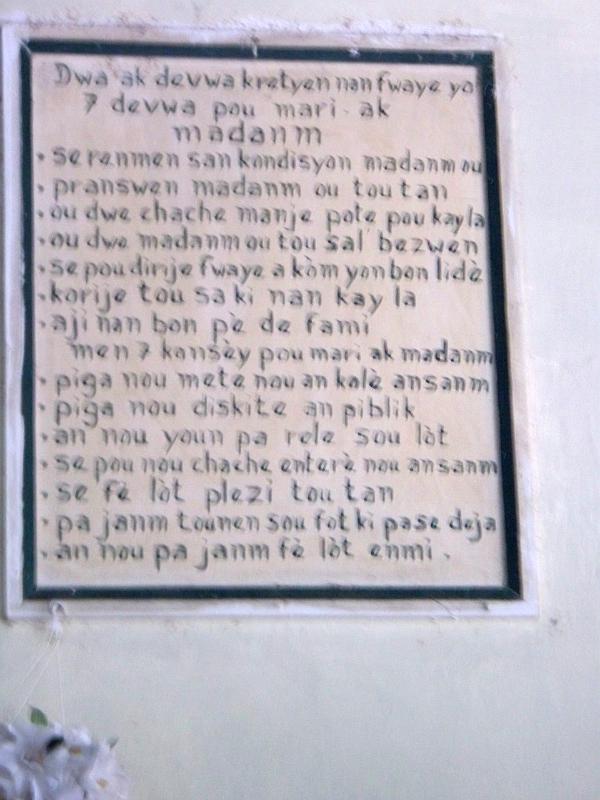 Dwa ak devwa kretyen nan fwaye yo
7 devwa pou mari ak
madanm
• se renmen san kondisyon madanm ou
• pran swen madanm ou tou tan
• ou dwe chache manje pote pou kay la
• ou dwe madanm ou tou sal bezwen
• se pou dirije fwaye a kòm yon bon lidè
• korije tou sa ki nan kay la
• aji nan bon pè de fami
men 7 konsèy pou mari ak madanm
• piga nou mete nou an kolè ansanm
• piga nou diskite an piblik
• an nou youn pa rele sou lòt
• se pou nou chache enterè nou ansanm
• se fè lòt plezi tou tan
• pa janm tounen sou fot ki pase deja
• an nou pa janm fè lòt enmi.